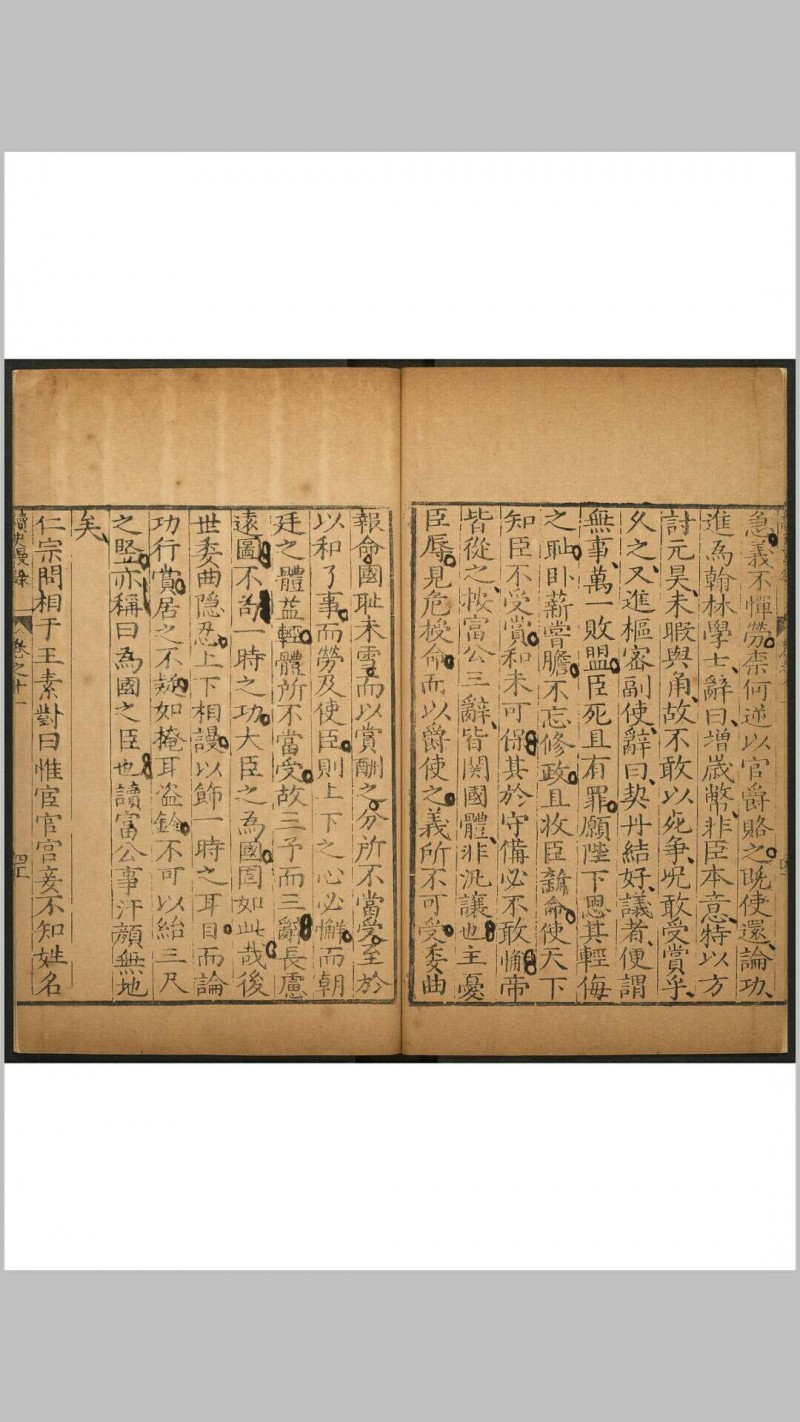 急義不憚勞柰何逆以官爵賂之既使還論功
進為翰林學士辭曰增歲幣非臣本意特以方
討元昊未暇與角故不敢以死爭况敢受賞乎
久之又進樞密副使辭曰契丹結好議者便謂
無事萬一敗盟臣死且有罪願陛下思其輕侮
之耻卧薪嘗膽不忘修政且收臣誥命使天下
知臣不受賞和未可得其於守備必不敢懈帝
皆從之按富公三辭皆関國體非汎讓也主憂
臣辱見危授命而以爵使之義所不可受委曲
報命國耻未雪而以賞酬之分所不當受至於
以和了事而勞及使臣則上下之心必懈而朝
廷之體益輕體所不當受故三予而三辭長慮
遠圖不一時之功大臣之為國固如此哉後
世委曲隱忍上下相謾以飾一時之耳目而論
功行賞居之不如掩耳盗鈴不可以紿三尺
之竪亦稱曰為國之臣也讀富公事汗顔無地
矣
仁宗問相于王素對曰惟宦官宫妾不知姓名
讀史漫錄
卷之十一